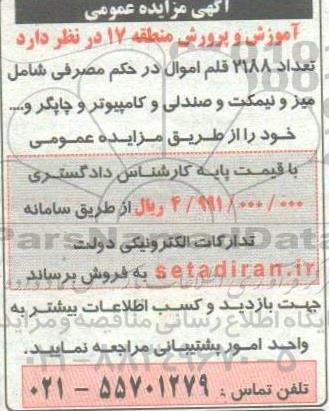 آگهی مزایده عمومی
آموزش و پرورش منطقه ۱۷ در نظر دارد
تعداد ۲۱۸۸ قلم اموال در حکم مصرفی شامل
میز و نیمکت و صندلی و کامپیوتر و چاپگر و....
خود را از طریق مزایده عمومی
با قیمت پایه کارشناس دادگستری
۴/۹۹۱/۰۰۰/۰۰۰ ریال از طریق سامانه
تدارکات الکترونیکی دولت
setadiran.ir به فروش برساند
جهت بازدید و کسب اطلاعات بیشتر به
واحد امور پشتیبانی مراجعه نمایید.
تلفن تماس : ۵۵۷۰۱۲۷۹ - ۰۲۱